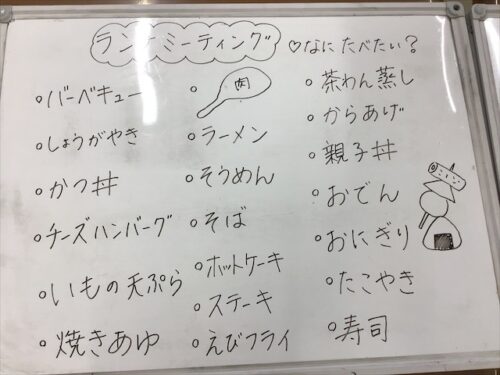 ランチミーティング ♡なにたべたい?
○バーベキュー
○しょうがやき
○かつ丼
○チーズハンバーグ
○いもの天ぷら
○焼きあゆ
○肉
○ラーメン
○そうめん
○そば
○ホットケーキ
○ステーキ
○えびフライ
○茶わん蒸し
○からあげ
○親子丼
○おでん
○おにぎり
○たこやき
○寿司